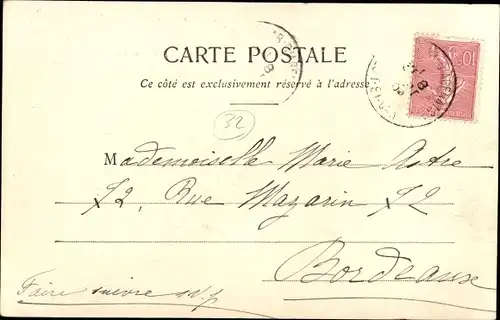 CARTE POSTALE
Ce côté est exclusivement réservé à l'adresse
32
Mademoiselle Marie Astre
72, Rue Mazarin 72
Bordeaux
Faire suivre s.v.p